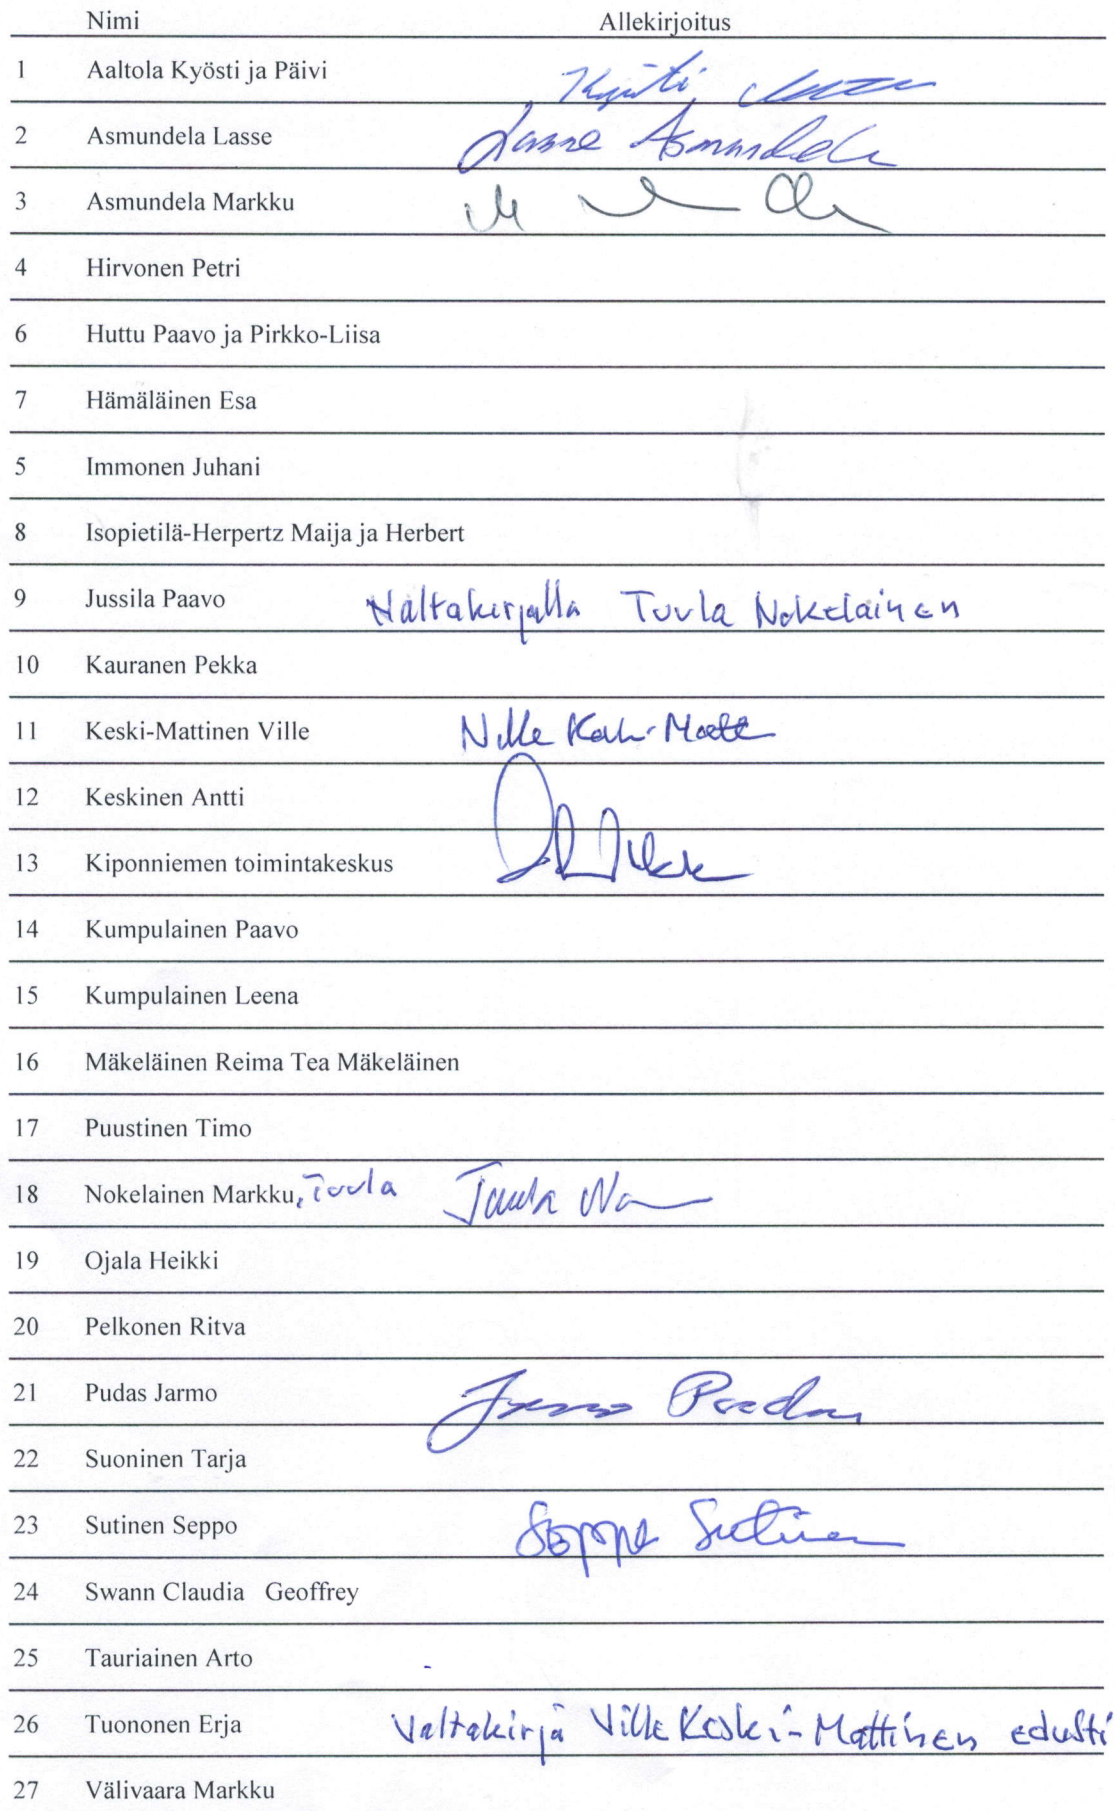 Nimi Allekirjoitus
1 Aaltola Kyösti ja Päivi Kyösti
2 Asmundela Lasse Lasse Asmundela
3 Asmundela Markku
4 Hirvonen Petri
6 Huttu Paavo ja Pirkko-Liisa
7 Hämäläinen Esa
5 Immonen Juhani
8 Isopietilä-Herpertz Maija ja Herbert
9 Jussila Paavo Valtakirjalla Tuula Nokelainen
10 Kauranen Pekka
11 Keski-Mattinen Ville Ville
12 Keskinen Antti
13 Kiponniemen toimintakeskus
14 Kumpulainen Paavo
15 Kumpulainen Leena
16 Mäkeläinen Reima Tea Mäkeläinen
17 Puustinen Timo
18 Nokelainen Markku, Tuula Tuula
19 Ojala Heikki
20 Pelkonen Ritva
21 Pudas Jarmo Jarmo Pudas
22 Suoninen Tarja
23 Sutinen Seppo Seppo Sutinen
24 Swann Claudia Geoffrey
25 Tauriainen Arto
26 Tuononen Erja Valtakirja Ville Keski-Mattinen edusti
27 Välivaara Markku